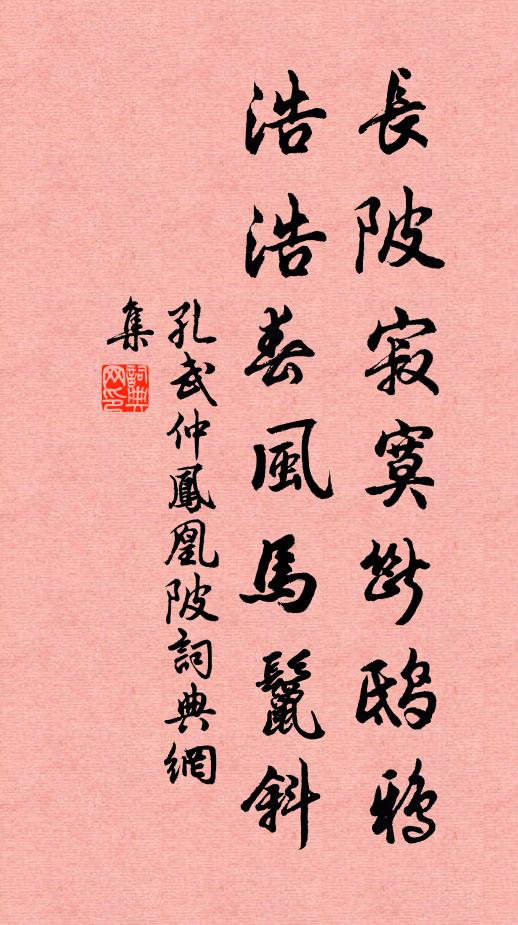 長陂寂寞斷鴟鴉
浩浩春風馬鬣斜
孔武仲鳳凰陂詞典網
集
詞典網印